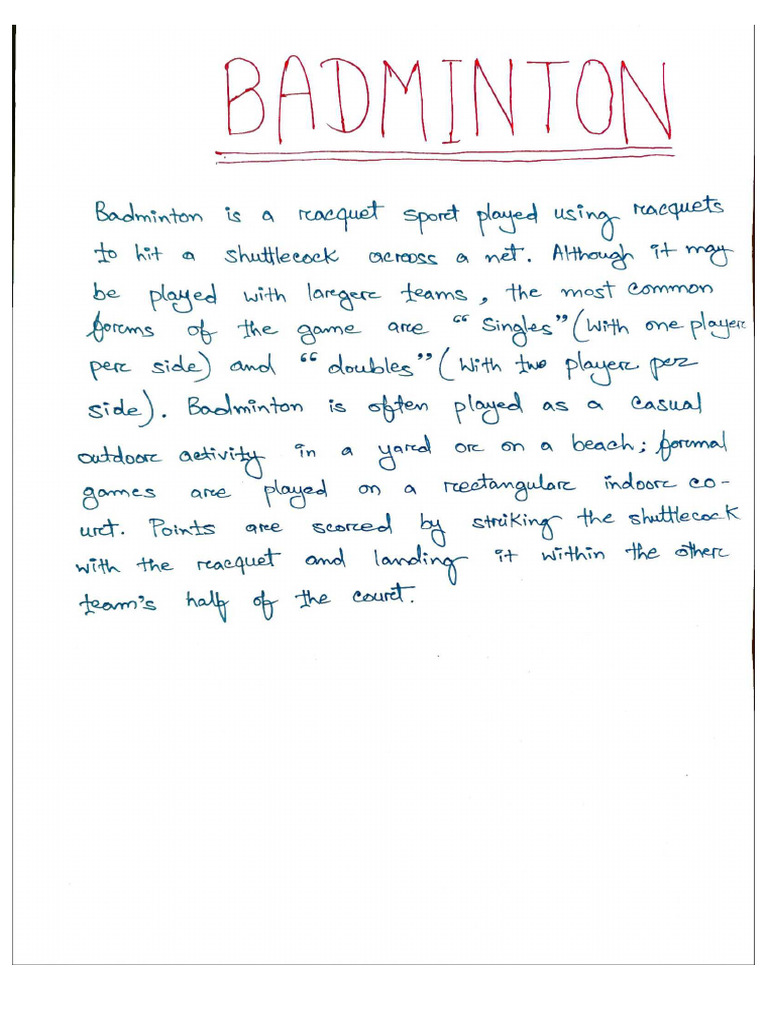 BADMINTON
Badminton is a racquet sport played using racquets
to hit a shuttlecock across a net. Although it may
be played with larger teams, the most common
forms of the game are "singles" (with one player
per side) and "doubles" (with two player per
side). Badminton is often played as a casual
outdoor activity in a yard or on a beach; formal
games are played on a rectangular indoor co-
urt. Points are scored by striking the shuttlecock
with the racquet and landing it within the other
team's half of the court.